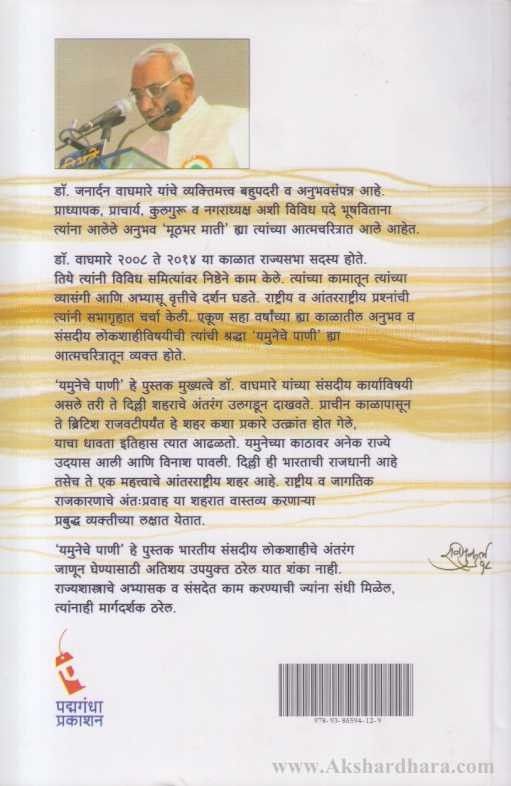 डॉ. जनार्दन वाघमारे यांचे व्यक्तिमत्त्व बहुपदरी व अनुभवसंपन्न आहे.
प्राध्यापक, प्राचार्य, कुलगुरू व नगराध्यक्ष अशी विविध पदे भूषविताना
त्यांना आलेले अनुभव ‘मूठभर माती’ ह्या त्यांच्या आत्मचरित्रात आले आहेत.
डॉ. वाघमारे २००८ ते २०१४ या काळात राज्यसभा सदस्य होते.
तिथे त्यांनी विविध समित्यांवर निष्ठेने काम केले. त्यांच्या कामातून त्यांच्या
व्यासंगी आणि अभ्यासू वृत्तीचे दर्शन घडते. राष्ट्रीय व आंतरराष्ट्रीय प्रश्नांची
त्यांनी सभागृहात चर्चा केली. एकूण सहा वर्षांच्या ह्या काळातील अनुभव व
संसदीय लोकशाहीविषयीची त्यांची श्रद्धा ‘यमुनेचे पाणी’ ह्या
आत्मचरित्रातून व्यक्त होते.
‘यमुनेचे पाणी’ हे पुस्तक मुख्यत्वे डॉ. वाघमारे यांच्या संसदीय कार्याविषयी
असले तरी ते दिल्ली शहराचे अंतरंग उलगडून दाखवते. प्राचीन काळापासून
ते ब्रिटिश राजवटीपर्यंत हे शहर कशा प्रकारे उत्क्रांत होत गेले,
याचा धावता इतिहास त्यात आढळतो. यमुनेच्या काठावर अनेक राज्ये
उदयास आली आणि विनाश पावली. दिल्ली ही भारताची राजधानी आहे
तसेच ते एक महत्त्वाचे आंतरराष्ट्रीय शहर आहे. राष्ट्रीय व जागतिक
राजकारणाचे अंतःप्रवाह या शहरात वास्तव्य करणाऱ्या
प्रबुद्ध व्यक्तीच्या लक्षात येतात.
‘यमुनेचे पाणी’ हे पुस्तक भारतीय संसदीय लोकशाहीचे अंतरंग
जाणून घेण्यासाठी अतिशय उपयुक्त ठरेल यात शंका नाही.
राज्यशास्त्राचे अभ्यासक व संसदेत काम करण्याची ज्यांना संधी मिळेल,
त्यांनाही मार्गदर्शक ठरेल.
पद्मगंधा
प्रकाशन
978-93-86594-12-9
www.Akshardhara.com